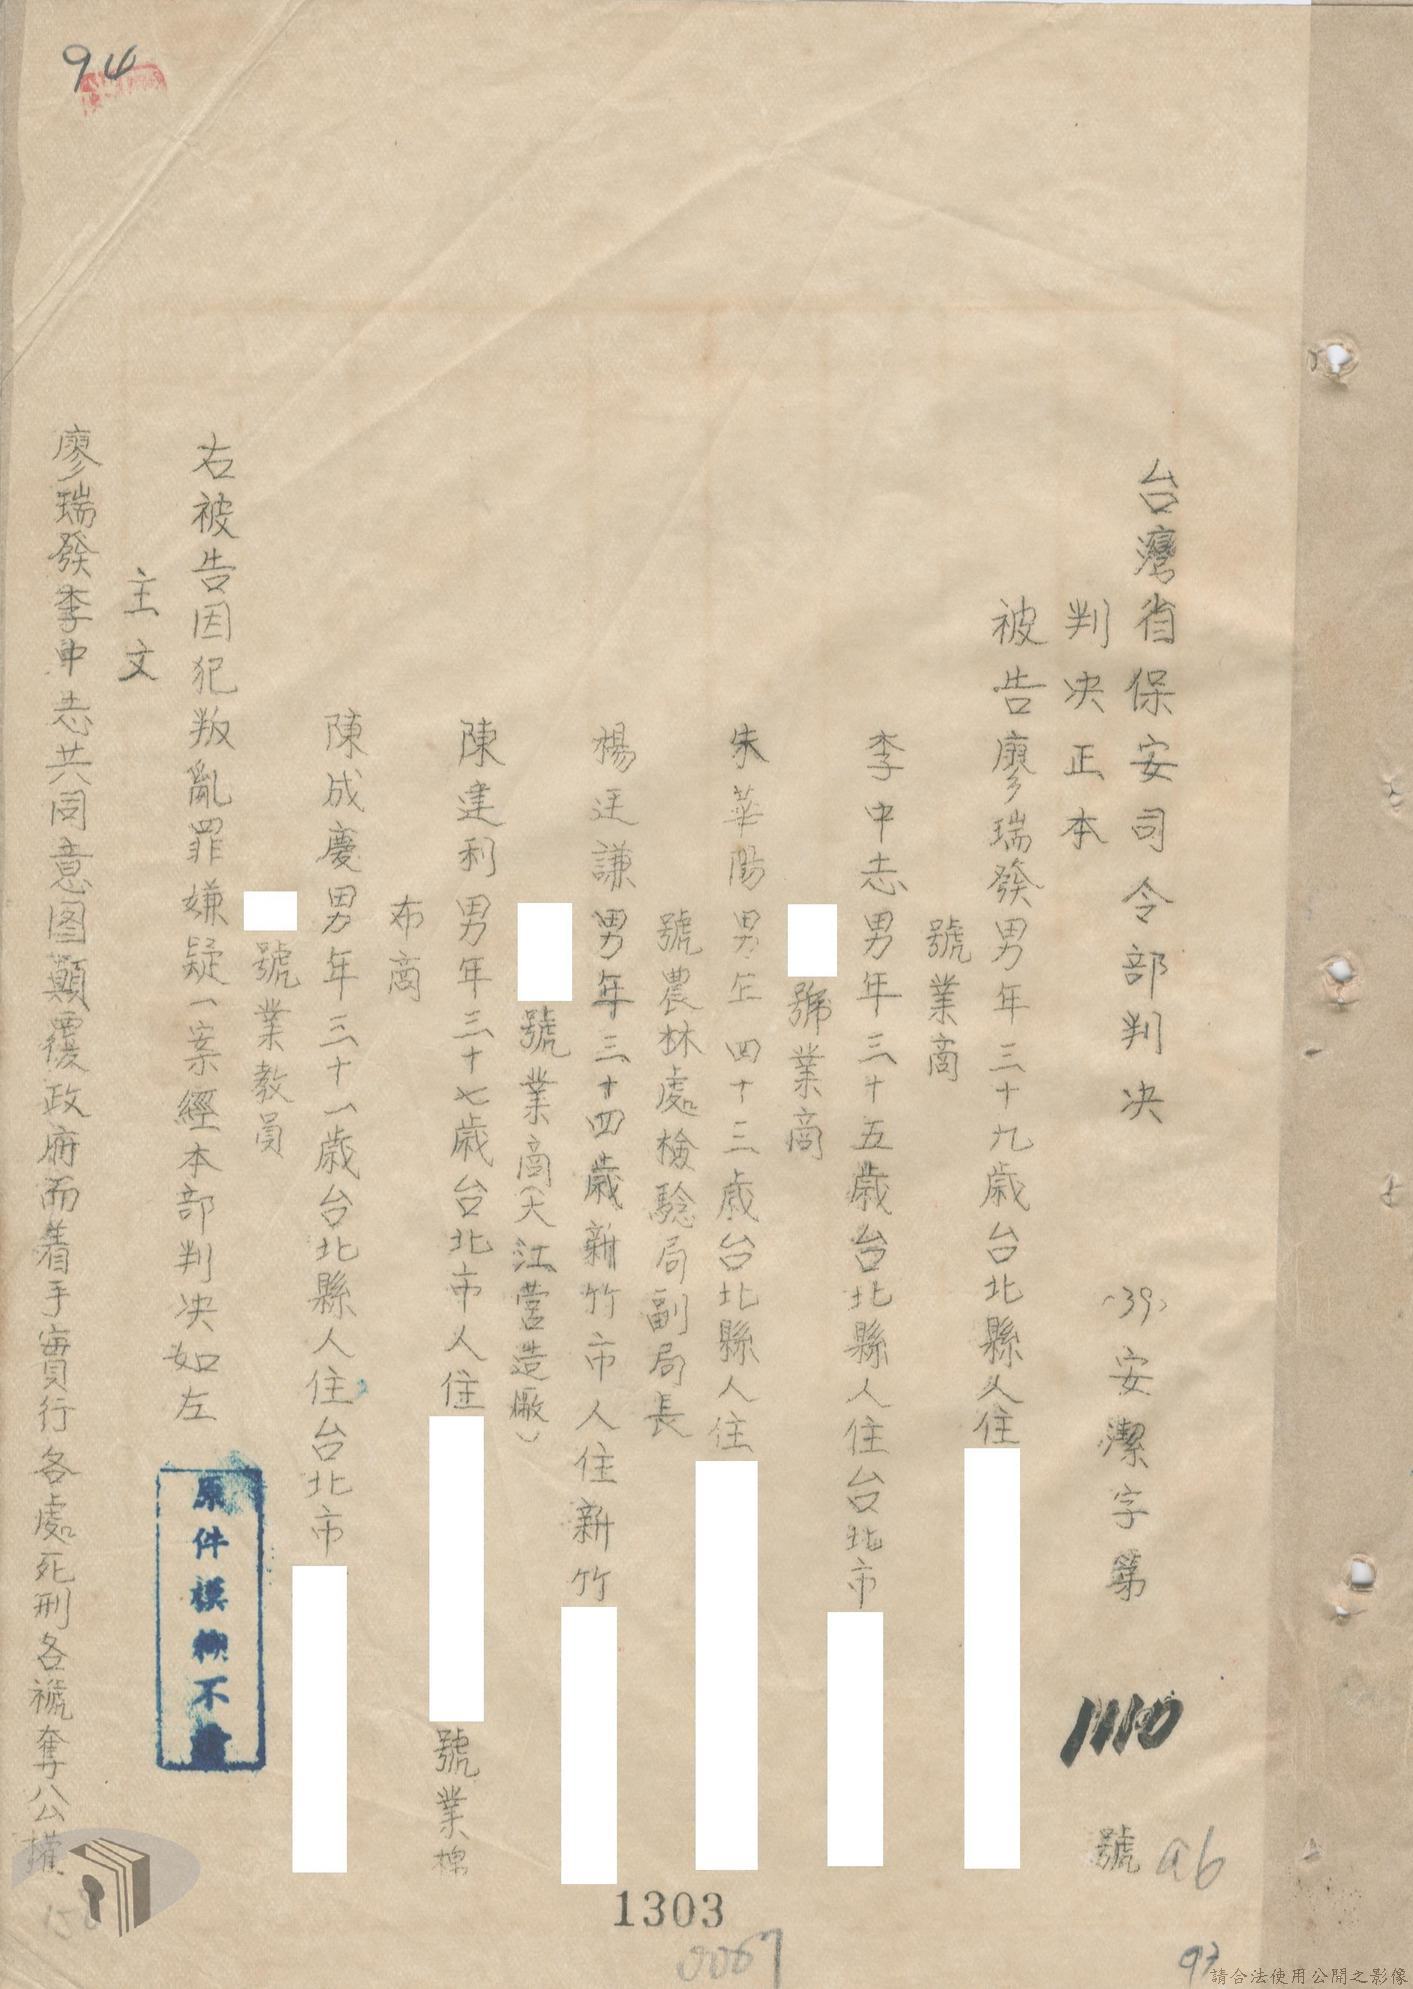 94
台灣省保安司令部判决 (39)安潔字第1110號
判决正本
被告廖瑞發男年三十九歲台北縣人住
號業商
李中志男年三十五歲台北縣人住台北市
號業商
朱華陽男年四十三歲台北縣人住
號農林處檢驗局副局長
楊廷謙男年三十四歲新竹市人住新竹
號業商(大江營造廠)
陳建利男年三十七歲台北市人住 號業棉
布商
陳成慶男年三十一歲台北縣人住台北市
號業教員
右被告因犯叛亂罪嫌疑一案經本部判决如左
主文
廖瑞發李中志共同意图顚覆政府而着手實行各處死刑各褫奪公權
原件模糊不
1303
0067
96
93
請合法使用公開之影像